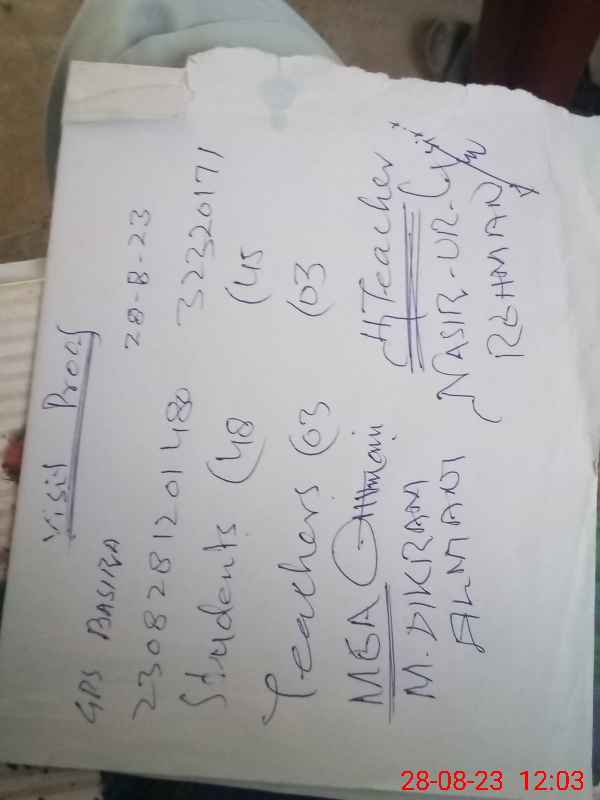 Visit Proof
GPS BASIRA 28-8-23
230828120148 32320171
Students (48 (45
Teachers (03 (03
MEA H/Teacher
M. DIKRAM NASIR-UR-
ALMANI REHMAN
28-08-23 12:03